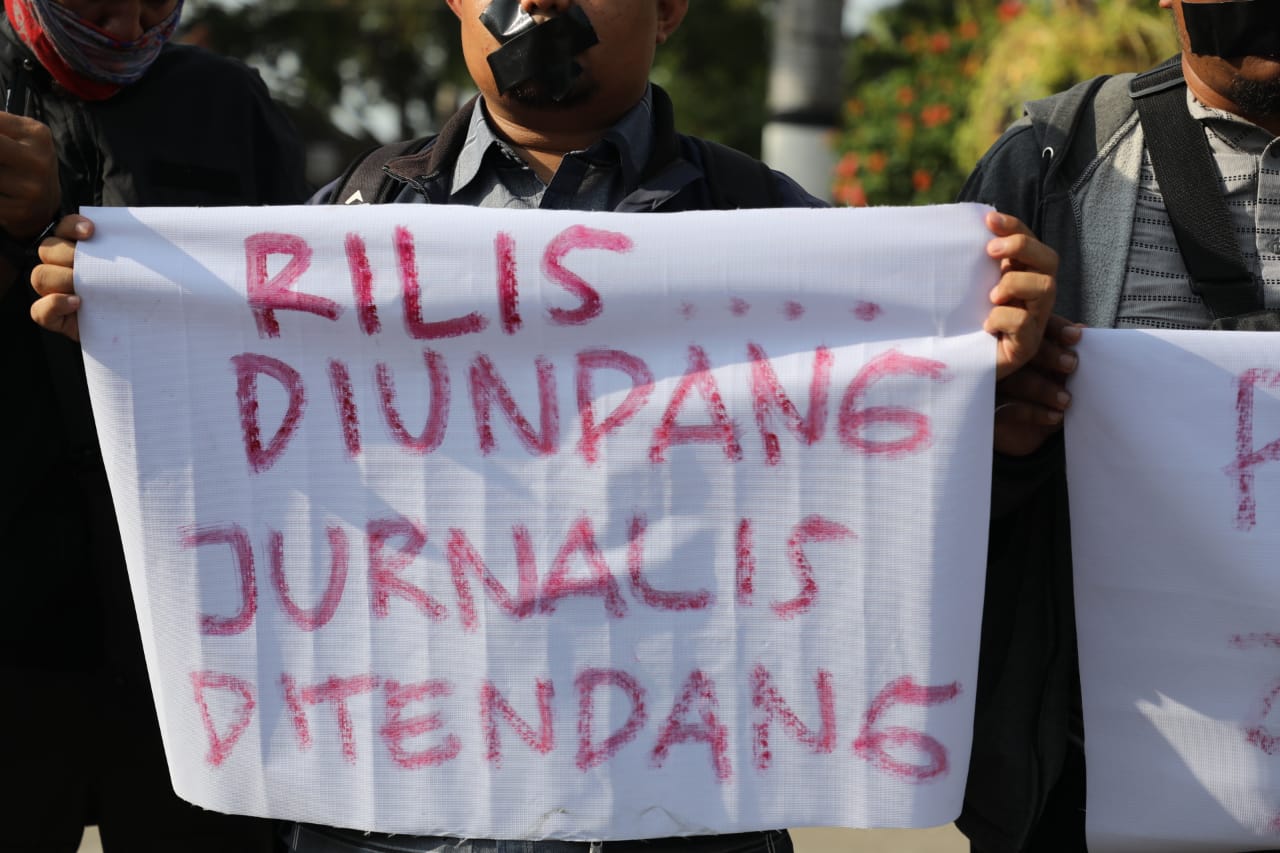 RILIS ....
DIUNPANG
JURNALIS
DITENDANG